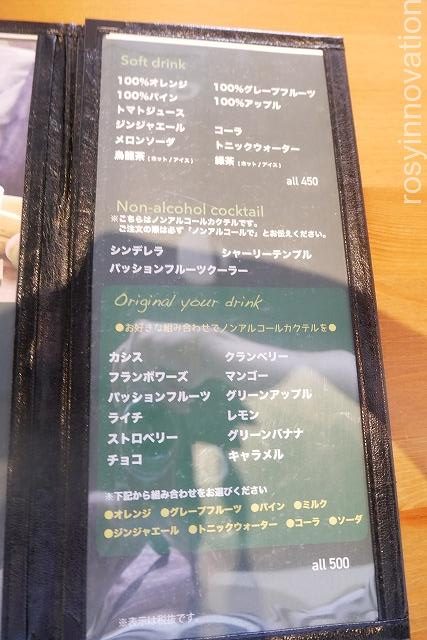 Soft drink
100%オレンジ 100%グレープフルーツ
100%パイン 100%アップル
トマトジュース
ジンジャエール コーラ
メロンソーダ トニックウォーター
烏龍茶(ホット/アイス) 緑茶(ホット/アイス)
all 450
Non-alcohol cocktail
※こちらはノンアルコールカクテルです。
ご注文の際は必ず「ノンアルコールで」とお伝えください。
シンデレラ シャーリーテンプル
パッションフルーツクーラー
Original your drink
●お好きな組み合わせでノンアルコールカクテルを●
カシス クランベリー
フランボワーズ マンゴー
パッションフルーツ グリーンアップル
ライチ レモン
ストロベリー グリーンバナナ
チョコ キャラメル
※下記から組み合わせをお選びください
●オレンジ ●グレープフルーツ ●パイン ●ミルク
●ジンジャエール ●トニックウォーター ●コーラ ●ソーダ
all 500
※表示は税抜です。
rosyinnovation